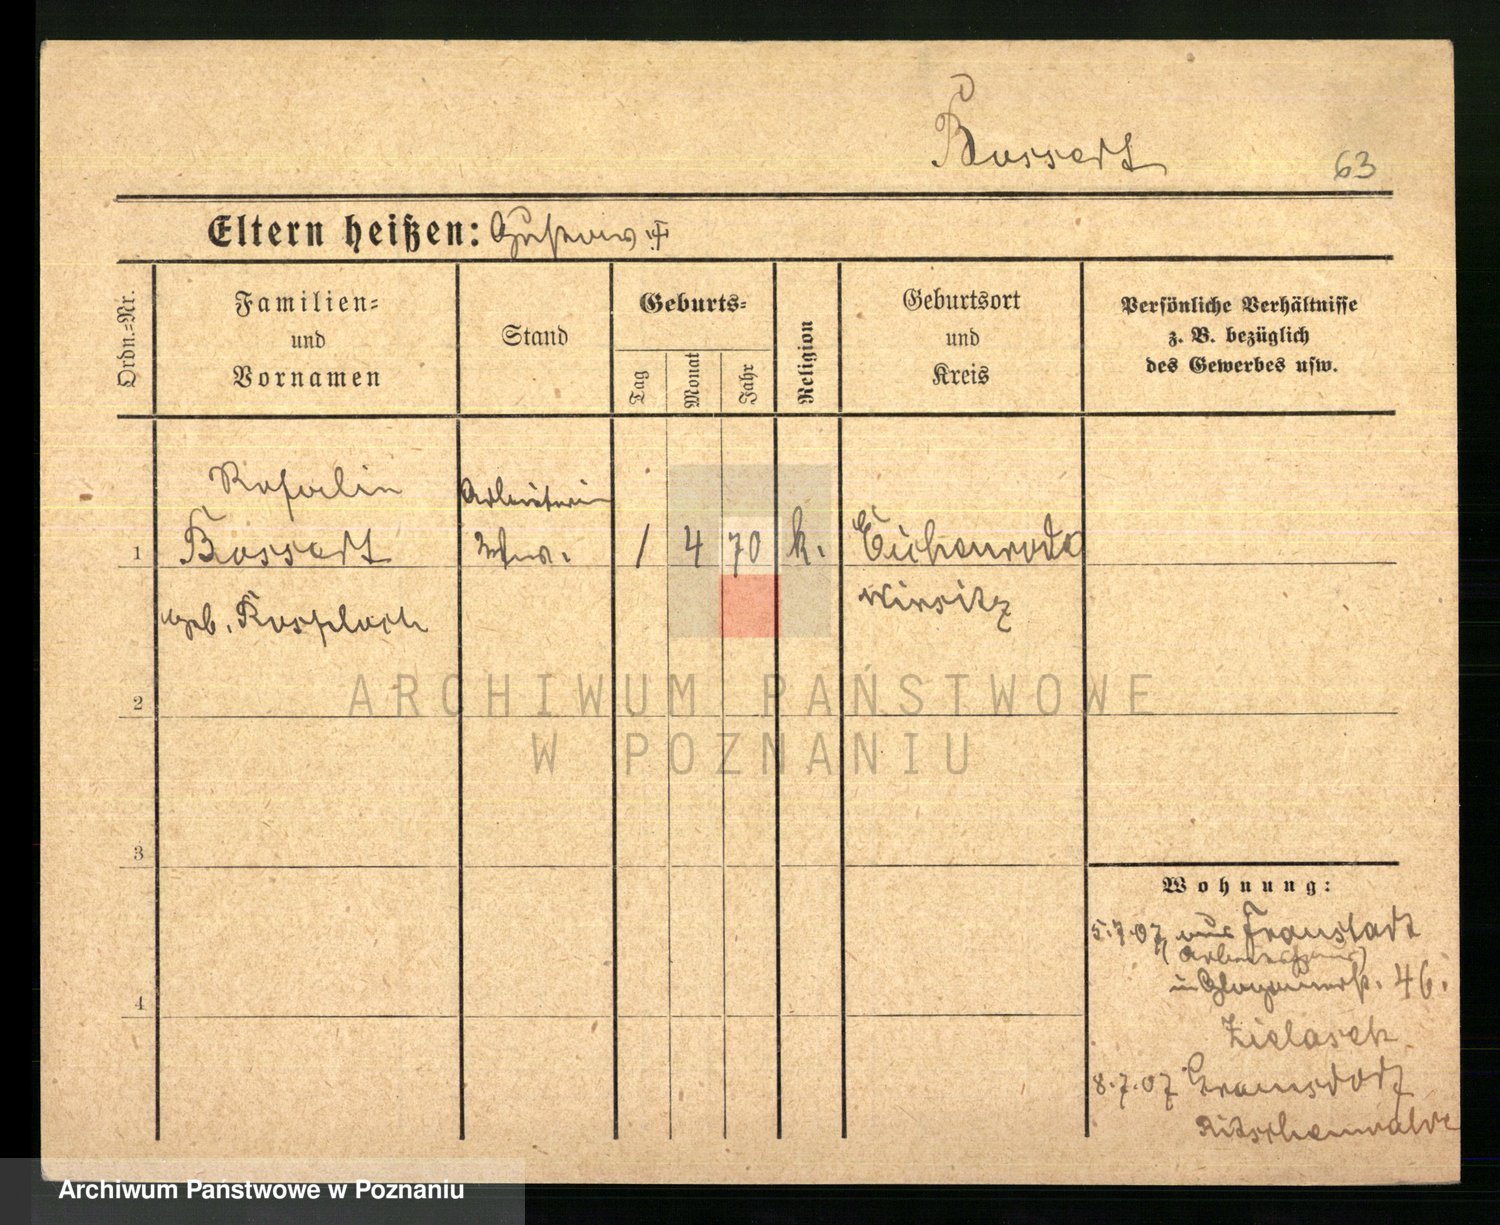 Bussert
63
Eltern heißen: Gustav †
Ordn.=Nr.
Familien=
und
Vornamen
Stand
Geburts=
Tag
Monat
Jahr
Religion
Geburtsort
und
Kreis
Persönliche Verhältnisse
z. B. bezüglich
des Gewerbes usw.
Rosalie
Arbeiterin
1
Bussert
Wwe.
1
4
70
k.
Eichenrode
geb.
Wirsitz
2
ARCHIWUM PAŃSTWOWE
W POZNANIU
3
Wohnung:
5.7.07 aus Fraustadt
(Arbeitshaus)
in Glogauerst. 46.
4
Zielasek
8.7.07 Gramsdorf
Ritschenwalde
Archiwum Państwowe w Poznaniu